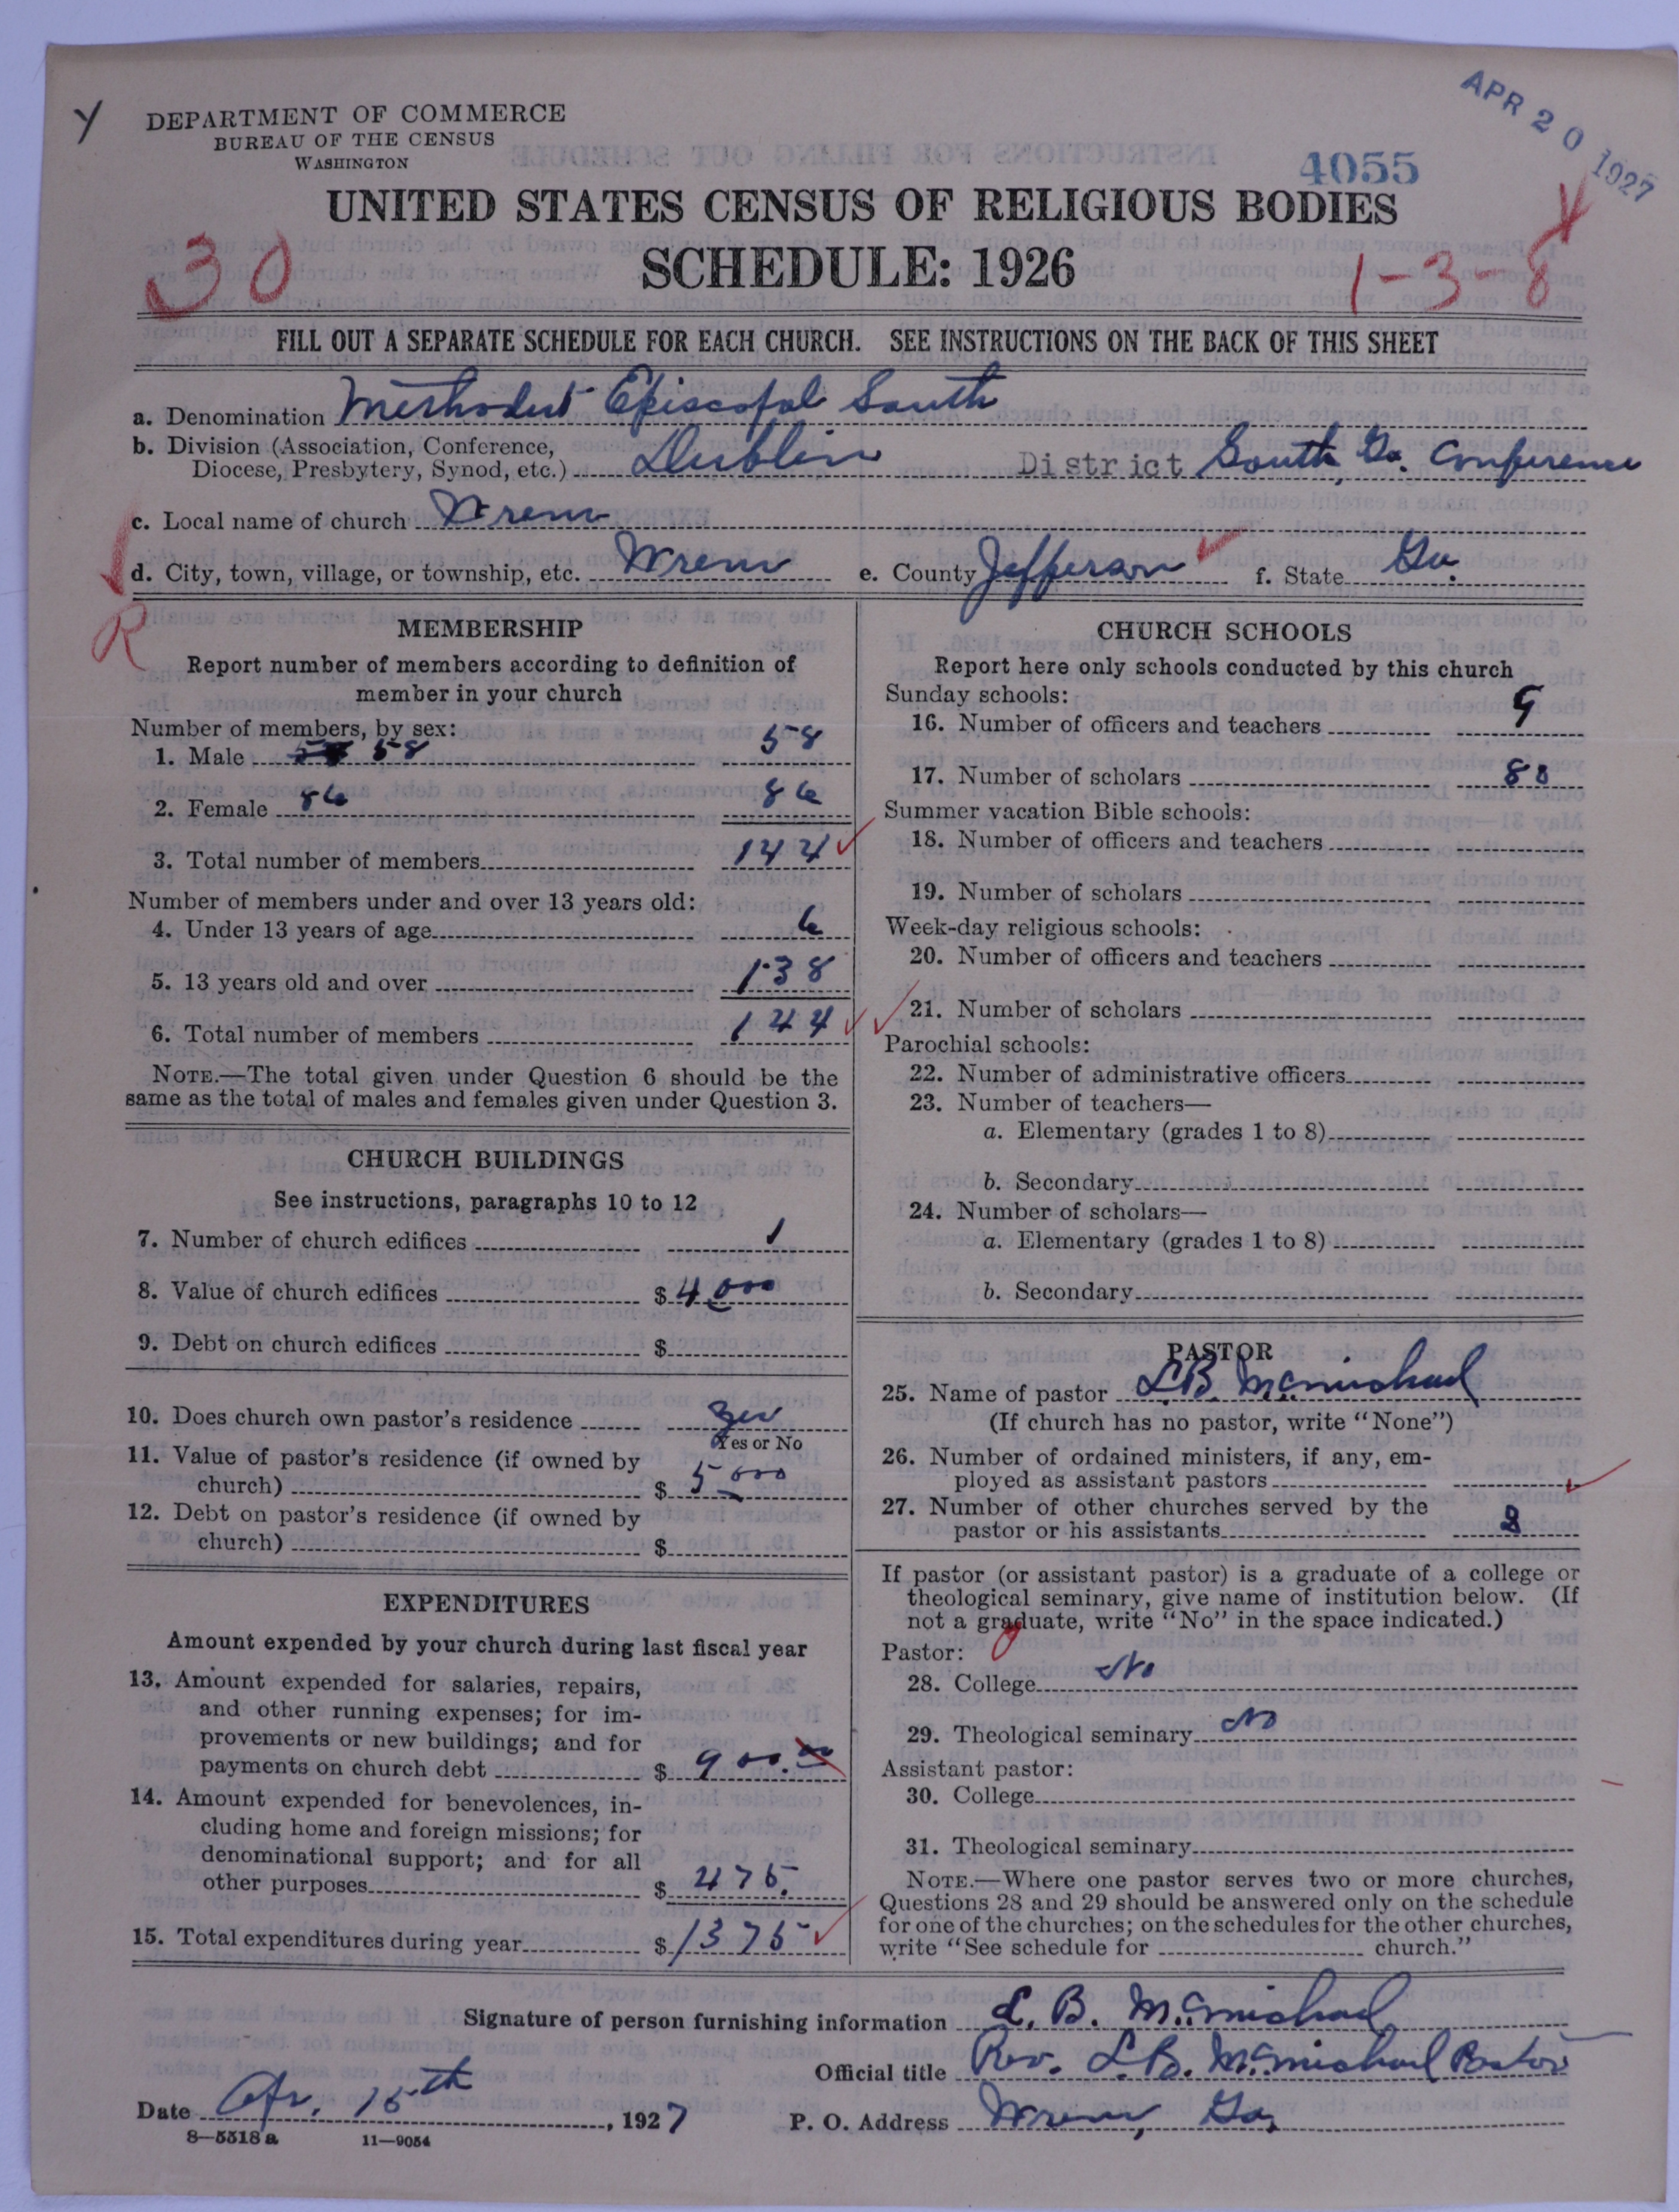 Y
APR 20 1927
DEPARTMENT OF COMMERCE
BUREAU OF THE CENSUS
WASHINGTON
4055
UNITED STATES CENSUS OF RELIGIOUS BODIES
30
SCHEDULE: 1926
1-3-8
FILL OUT A SEPARATE SCHEDULE FOR EACH CHURCH. SEE INSTRUCTIONS ON THE BACK OF THIS SHEET
a. Denomination Methodist Episcopal South
b. Division (Association, Conference,
Diocese, Presbytery, Synod, etc.) Dublin District South Ga. Conference
c. Local name of church Wrens
d. City, town, village, or township, etc. Wrens e. County Jefferson f. State Ga.
R
MEMBERSHIP
Report number of members according to definition of
member in your church
Number of members, by sex:
1. Male 58 58
2. Female 86 86
3. Total number of members 144
Number of members under and over 13 years old:
4. Under 13 years of age 6
5. 13 years old and over 138
6. Total number of members 144
NOTE.—The total given under Question 6 should be the
same as the total of males and females given under Question 3.
CHURCH BUILDINGS
See instructions, paragraphs 10 to 12
7. Number of church edifices 1
8. Value of church edifices $ 4000
9. Debt on church edifices $
10. Does church own pastor's residence Yes
Yes or No
11. Value of pastor's residence (if owned by
church) $ 5000
12. Debt on pastor's residence (if owned by
church) $
EXPENDITURES
Amount expended by your church during last fiscal year
13. Amount expended for salaries, repairs,
and other running expenses; for im-
provements or new buildings; and for
payments on church debt $ 900.00
14. Amount expended for benevolences, in-
cluding home and foreign missions; for
denominational support; and for all
other purposes $ 475.
15. Total expenditures during year $ 1375
CHURCH SCHOOLS
Report here only schools conducted by this church
Sunday schools:
16. Number of officers and teachers 9
17. Number of scholars 80
Summer vacation Bible schools:
18. Number of officers and teachers
19. Number of scholars
Week-day religious schools:
20. Number of officers and teachers
21. Number of scholars
Parochial schools:
22. Number of administrative officers
23. Number of teachers—
a. Elementary (grades 1 to 8)
b. Secondary
24. Number of scholars—
a. Elementary (grades 1 to 8)
b. Secondary
PASTOR
25. Name of pastor L.B. McMichael
(If church has no pastor, write "None")
26. Number of ordained ministers, if any, em-
ployed as assistant pastors
27. Number of other churches served by the
pastor or his assistants
If pastor (or assistant pastor) is a graduate of a college or
theological seminary, give name of institution below. (If
not a graduate, write "No" in the space indicated.)
Pastor:
28. College No
29. Theological seminary No
Assistant pastor:
30. College
31. Theological seminary
NOTE.—Where one pastor serves two or more churches,
Questions 28 and 29 should be answered only on the schedule
for one of the churches; on the schedules for the other churches,
write "See schedule for church."
Signature of person furnishing information L. B. McMichael
Official title Rev. L.B. McMichael Pastor
Date Apr. 15th, 1927 P. O. Address Wrens, Ga.
8—5518 a 11—9054